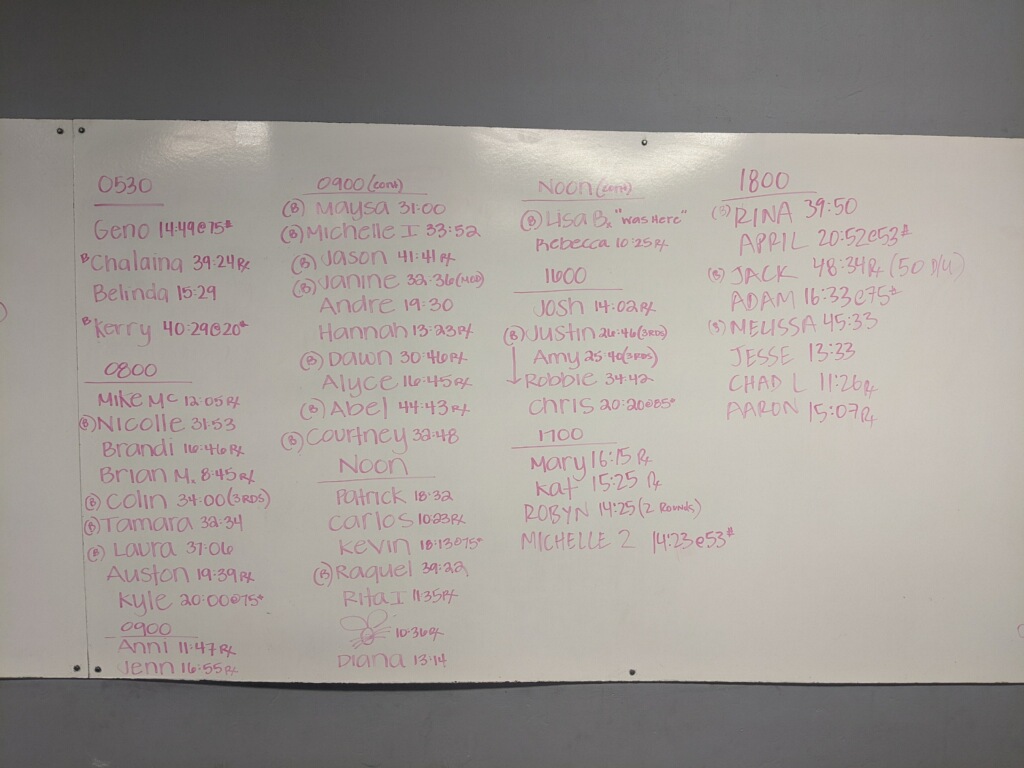 0530
Geno 14:49@75#
B Chalaina 39:24Rx
Belinda 15:29
B Kerry 40:29@20#
0800
Mike Mc 12:05Rx
(B) Nicolle 31:53
Brandi 16:46Rx
Brian M. 8:45Rx
(B) Colin 34:00(3RDS)
(B) Tamara 32:34
(B) Laura 37:06
Auston 19:39Rx
Kyle 20:00@75#
0900
Anni 11:47Rx
Jenn 16:55Rx
0900(cont)
(B) Maysa 31:00
(B) Michelle I 33:52
(B) Jason 41:41Rx
(B) Janine 32:36(MOD)
Andre 19:30
Hannah 13:23Rx
(B) Dawn 30:46Rx
Alyce 16:45Rx
(B) Abel 44:43Rx
(B) Courtney 32:48
Noon
Patrick 18:32
Carlos 10:23Rx
Kevin 18:13@75#
(B) Raquel 39:22
Rita I 11:35Rx
10:36Rx
Diana 13:14
Noon(cont)
(B) Lisa B. "was Here"
Rebecca 10:25Rx
1600
Josh 14:02Rx
(B) Justin 26:46(3RDS)
Amy 25:40(3RDS)
Robbie 34:42
Chris 20:20@85#
1700
Mary 16:15 Rx
Kat 15:25 Rx
ROBYN 14:25(2 Rounds)
MICHELLE 2 14:23@53#
1800
(B) RINA 39:50
APRIL 20:52@53#
(B) JACK 48:34Rx (50 D/U)
ADAM 16:33@75#
(B) MELISSA 45:33
JESSE 13:33
CHAD L 11:26Rx
AARON 15:07Rx